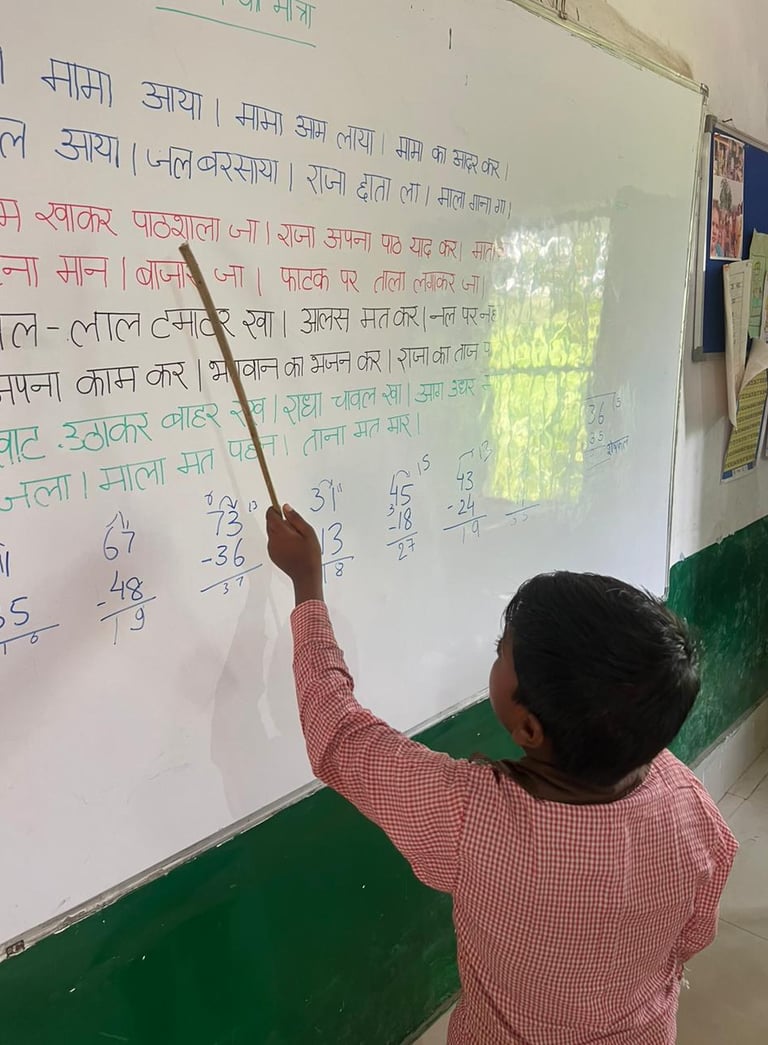 की मात्रा
मामा आया। मामा आम लाया। मामा का आदर कर।
आया। जल बरसाया। राजा छाता ला। माला गाना गा।
खाकर पाठशाला जा। राजा अपना पाठ याद कर।
मान। बाजार जा। फाटक पर ताला लगाकर जा।
लाल टमाटर खा। आलस मत कर। नल पर
अपना काम कर। भगवान का भजन कर। राजा का ताज
उठाकर बाहर रख। राधा चावल खा। आग उधर
जला। माला मत पहन। ताना मत मार।
67 73 31 45 43 36
-48 -36 13 -18 -24
19 37 18 27 19